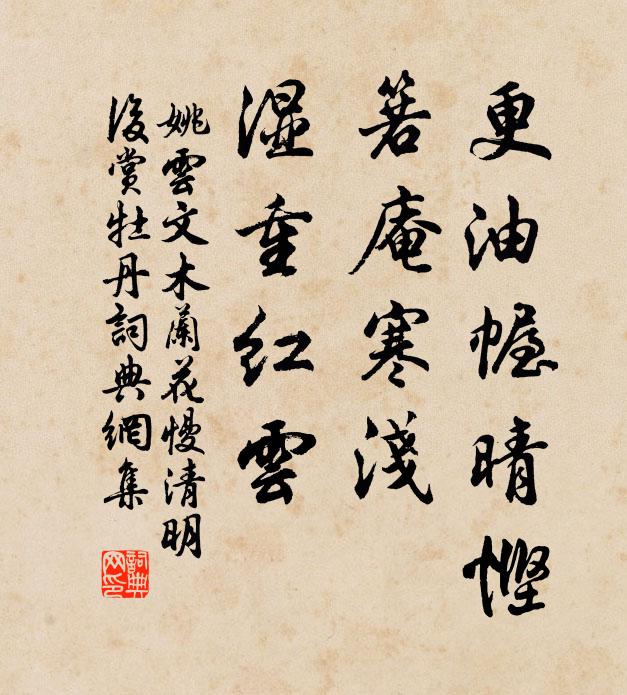 更油幄晴慳
箬庵寒淺
湿重红雲
姚雲文木蘭花慢清明
後賞牡丹詞典網集
詞典网印